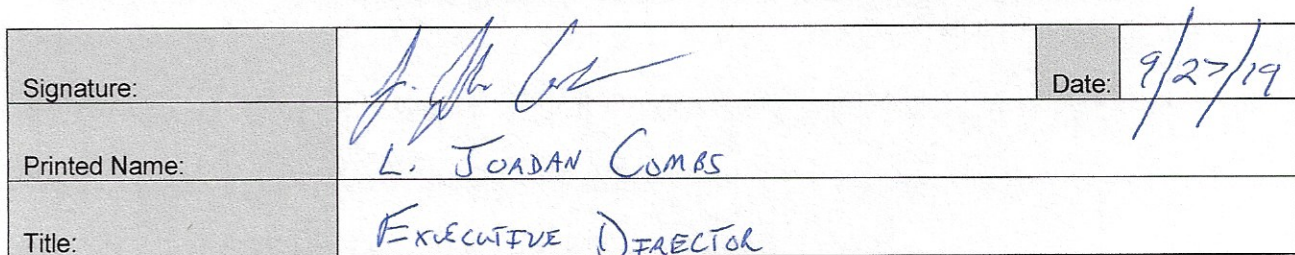 Signature: Date: 9/27/19
Printed Name: L. JORDAN COMBS
Title: EXECUTIVE DIRECTOR